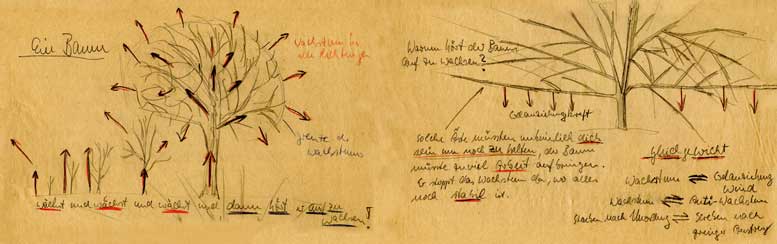 Ein Baum
Wachstum in
alle Richtungen
Grenze des
Wachstums
wächst und wächst und wächst und dann hört er auf zu
wachsen!
Warum hört der Baum
auf zu wachsen?
Erdanziehungskraft
Solche Äste müssten unheimlich dick
sein um noch zu halten, der Baum
müsste zu viel Arbeit aufbringen.
Er stoppt das Wachstum da, wo alles
noch stabil ist.
Gleichgewicht
Wachstum ⇌ Erdanziehung
Wind
Wachstum ⇌ Anti-Wachstum
Streben nach Unordnung ⇌ Streben nach